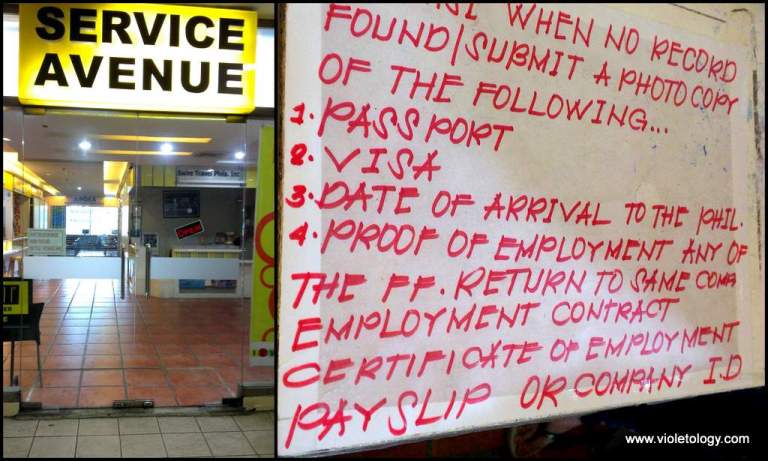 SERVICE
AVENUE
Swire Travel Phils. Inc.
OPEN
WHEN NO RECORD
FOUND/SUBMIT A PHOTO COPY
OF THE FOLLOWING...
1. PASSPORT
2. VISA
3. DATE OF ARRIVAL TO THE PHIL.
4. PROOF OF EMPLOYMENT ANY OF
THE FF. RETURN TO SAME
EMPLOYMENT CONTRACT
CERTIFICATE OF EMPLOYMENT
PAYSLIP OR COMPANY I.D
www.violetology.com